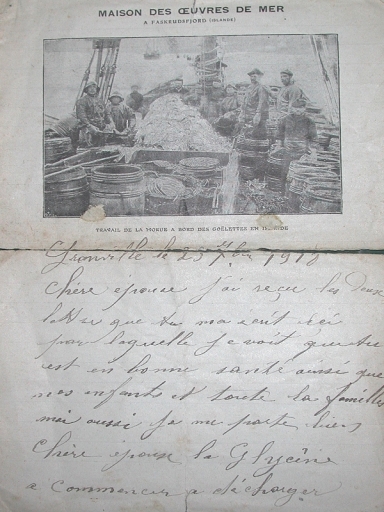 MAISON DES ŒUVRES DE MER
A FASKRUDSFJORD (ISLANDE)
TRAVAIL DE LA MORUE A BORD DES GOËLETTES EN ISLANDE
Granville le 25 1910
Chère epouse j'ai reçu les deux
lettre que tu ma écrit ici
par laquelle je voit que tu
est en bonne santé ainsi que
nos enfants et toute la famille
moi aussi ja me porte bien
Chère epouse la Glycine
a commencer a décharger